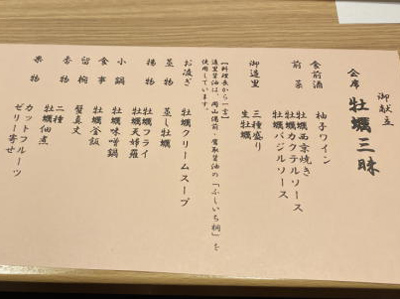 御献立
会席 牡蠣三昧
食前酒 柚子ワイン
前菜 牡蠣西京焼き
牡蠣カクテルソース
牡蠣バジルソース
御造里 三種盛り
生牡蠣
【料理長から一言】
造里醤油は、岡山備前・鷹取醤油の「ふしいち桐」を
使用しています。
お凌ぎ 牡蠣クリームスープ
蒸物 蒸し牡蠣
揚物 牡蠣フライ
牡蠣天婦羅
小鍋 牡蠣味噌鍋
食事 牡蠣釜飯
留椀 蟹真丈
香物 二種
牡蠣佃煮
果物 カットフルーツ
ゼリー寄せ